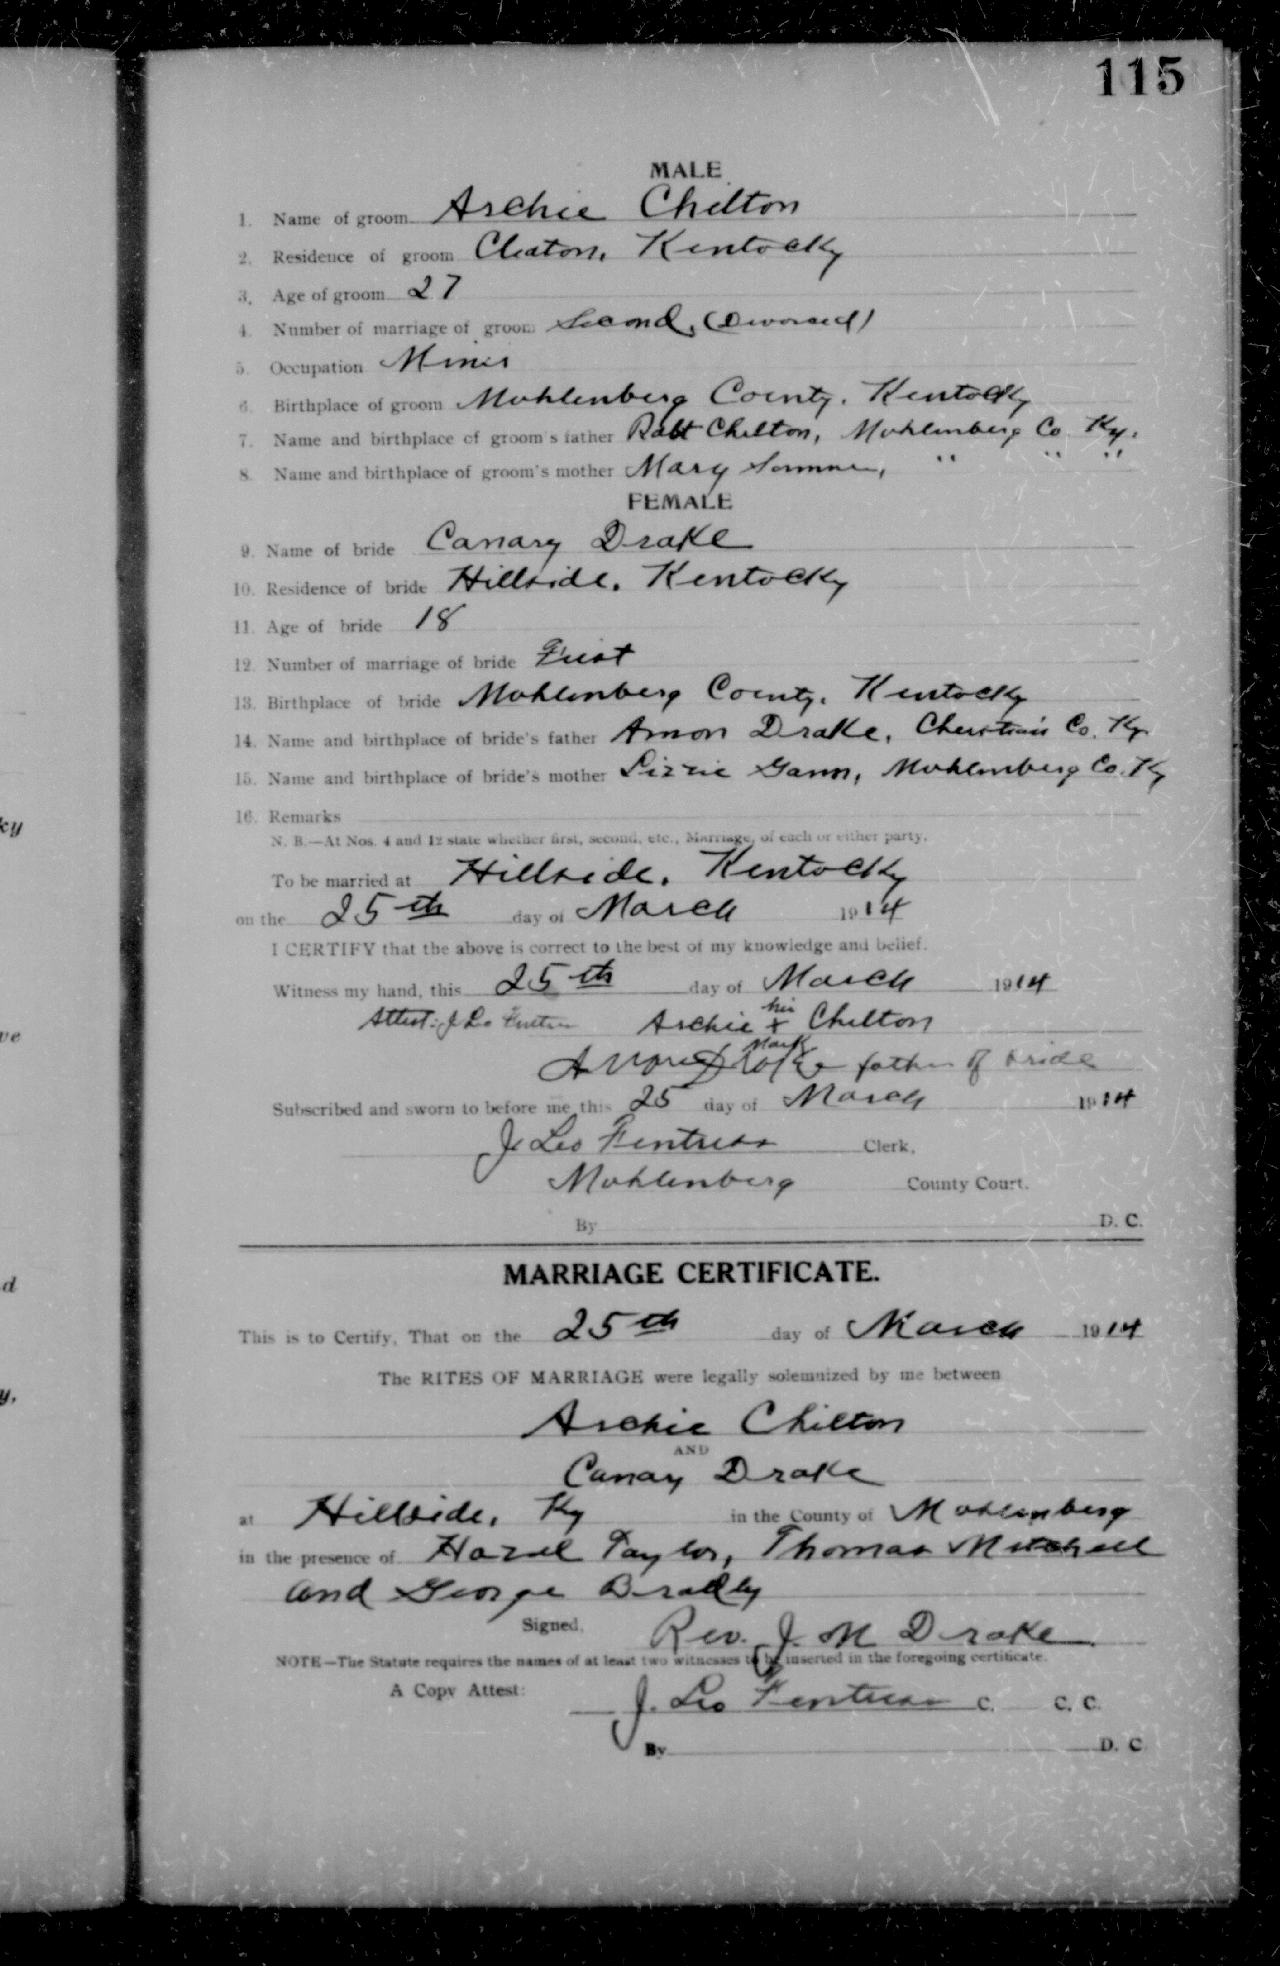 115
MALE
1. Name of groom Archie Chilton
2. Residence of groom Cleaton, Kentucky
3. Age of groom 27
4. Number of marriage of groom Second, (Divorced)
5. Occupation Miner
6. Birthplace of groom Muhlenberg County, Kentucky
7. Name and birthplace of groom's father Robt Chilton, Muhlenberg Co. Ky.
8. Name and birthplace of groom's mother Mary " " "
FEMALE
9. Name of bride Canary Drake
10. Residence of bride Hillside, Kentucky
11. Age of bride 18
12. Number of marriage of bride First
13. Birthplace of bride Muhlenberg County, Kentucky
14. Name and birthplace of bride's father Amon Drake, Christian Co. Ky
15. Name and birthplace of bride's mother Lizzie Gann, Muhlenberg Co. Ky
16. Remarks
N. B.—At Nos. 4 and 12 state whether first, second, etc., Marriage, of each or either party.
To be married at Hillside, Kentucky
on the 25th day of March 1914
I CERTIFY that the above is correct to the best of my knowledge and belief.
Witness my hand, this 25th day of March 1914
his
Attest: J Leo Fentress Archie x Chilton
mark
Amon Drake father of bride
Subscribed and sworn to before me this 25 day of March 1914
J. Leo Fentress Clerk,
Muhlenberg County Court.
By D. C.
MARRIAGE CERTIFICATE.
This is to Certify, That on the 25th day of March 1914
The RITES OF MARRIAGE were legally solemnized by me between
Archie Chilton
AND
Canay Drake
at Hillside, Ky in the County of Muhlenberg
in the presence of Hazel Taylor, Thomas Mitchell
and George Bradley
Signed, Rev. J. M Drake
NOTE—The Statute requires the names of at least two witnesses to be inserted in the foregoing certificate.
A Copy Attest: J. Leo Fentress C. C. C.
By D. C.
ky
ve
d
y,